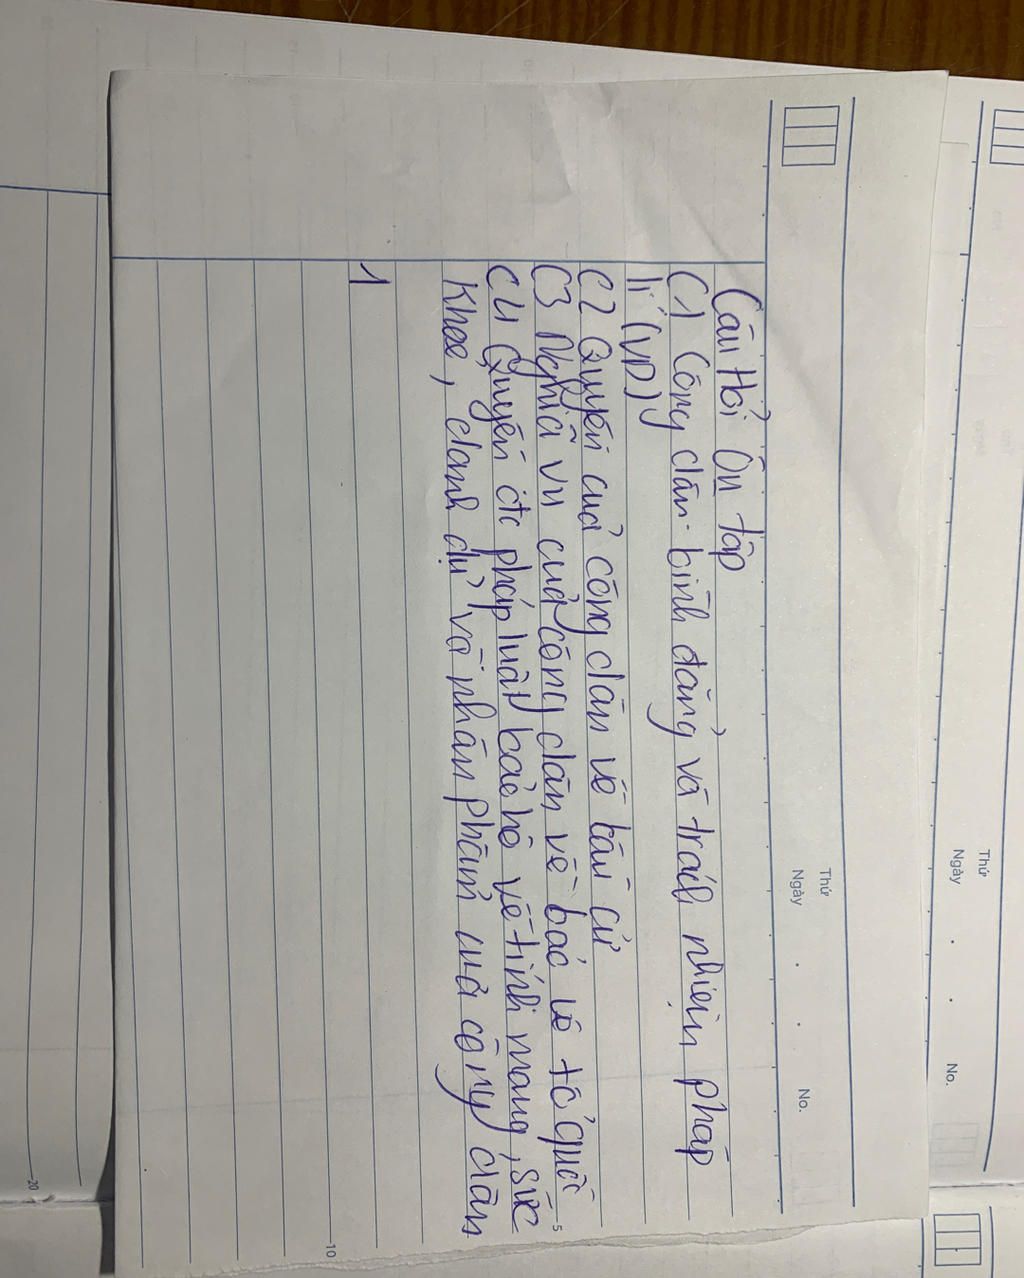 Câu Hỏi Ôn tập
C1 Công dân bình đẳng và trách nhiệm pháp
lí (VD)
C2 Quyền của công dân về bầu cử
C3 Nghĩa vụ của công dân về bảo vệ tổ quốc
C4 Quyền đc pháp luật bảo hộ về tính mạng, sức
khỏe, danh dự và nhân phẩm của công dân
1
Thứ
Ngày
No.
5
10
Thứ
Ngày
No.
20